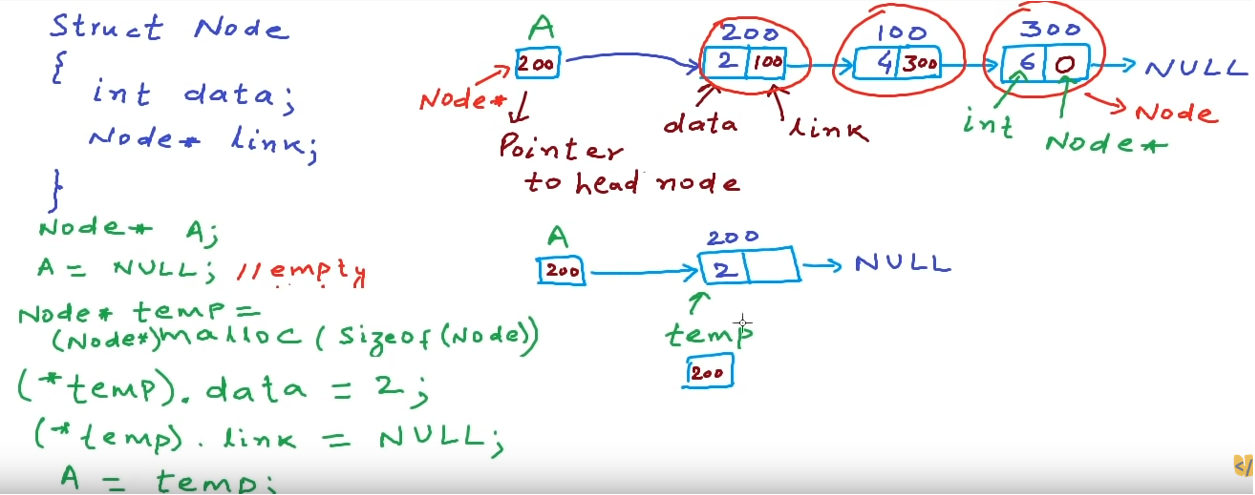 Struct Node
{
int data;
Node* link;
}
Node* A;
A = NULL; //empty
Node* temp =
(Node*)malloc(sizeof(Node))
(*temp).data = 2;
(*temp).link = NULL;
A = temp;
A
200
Node*
Pointer
to head node
200
2 100
data link
100
4 300
300
6 0
NULL
int
Node*
Node
A
200
200
2
NULL
temp
200